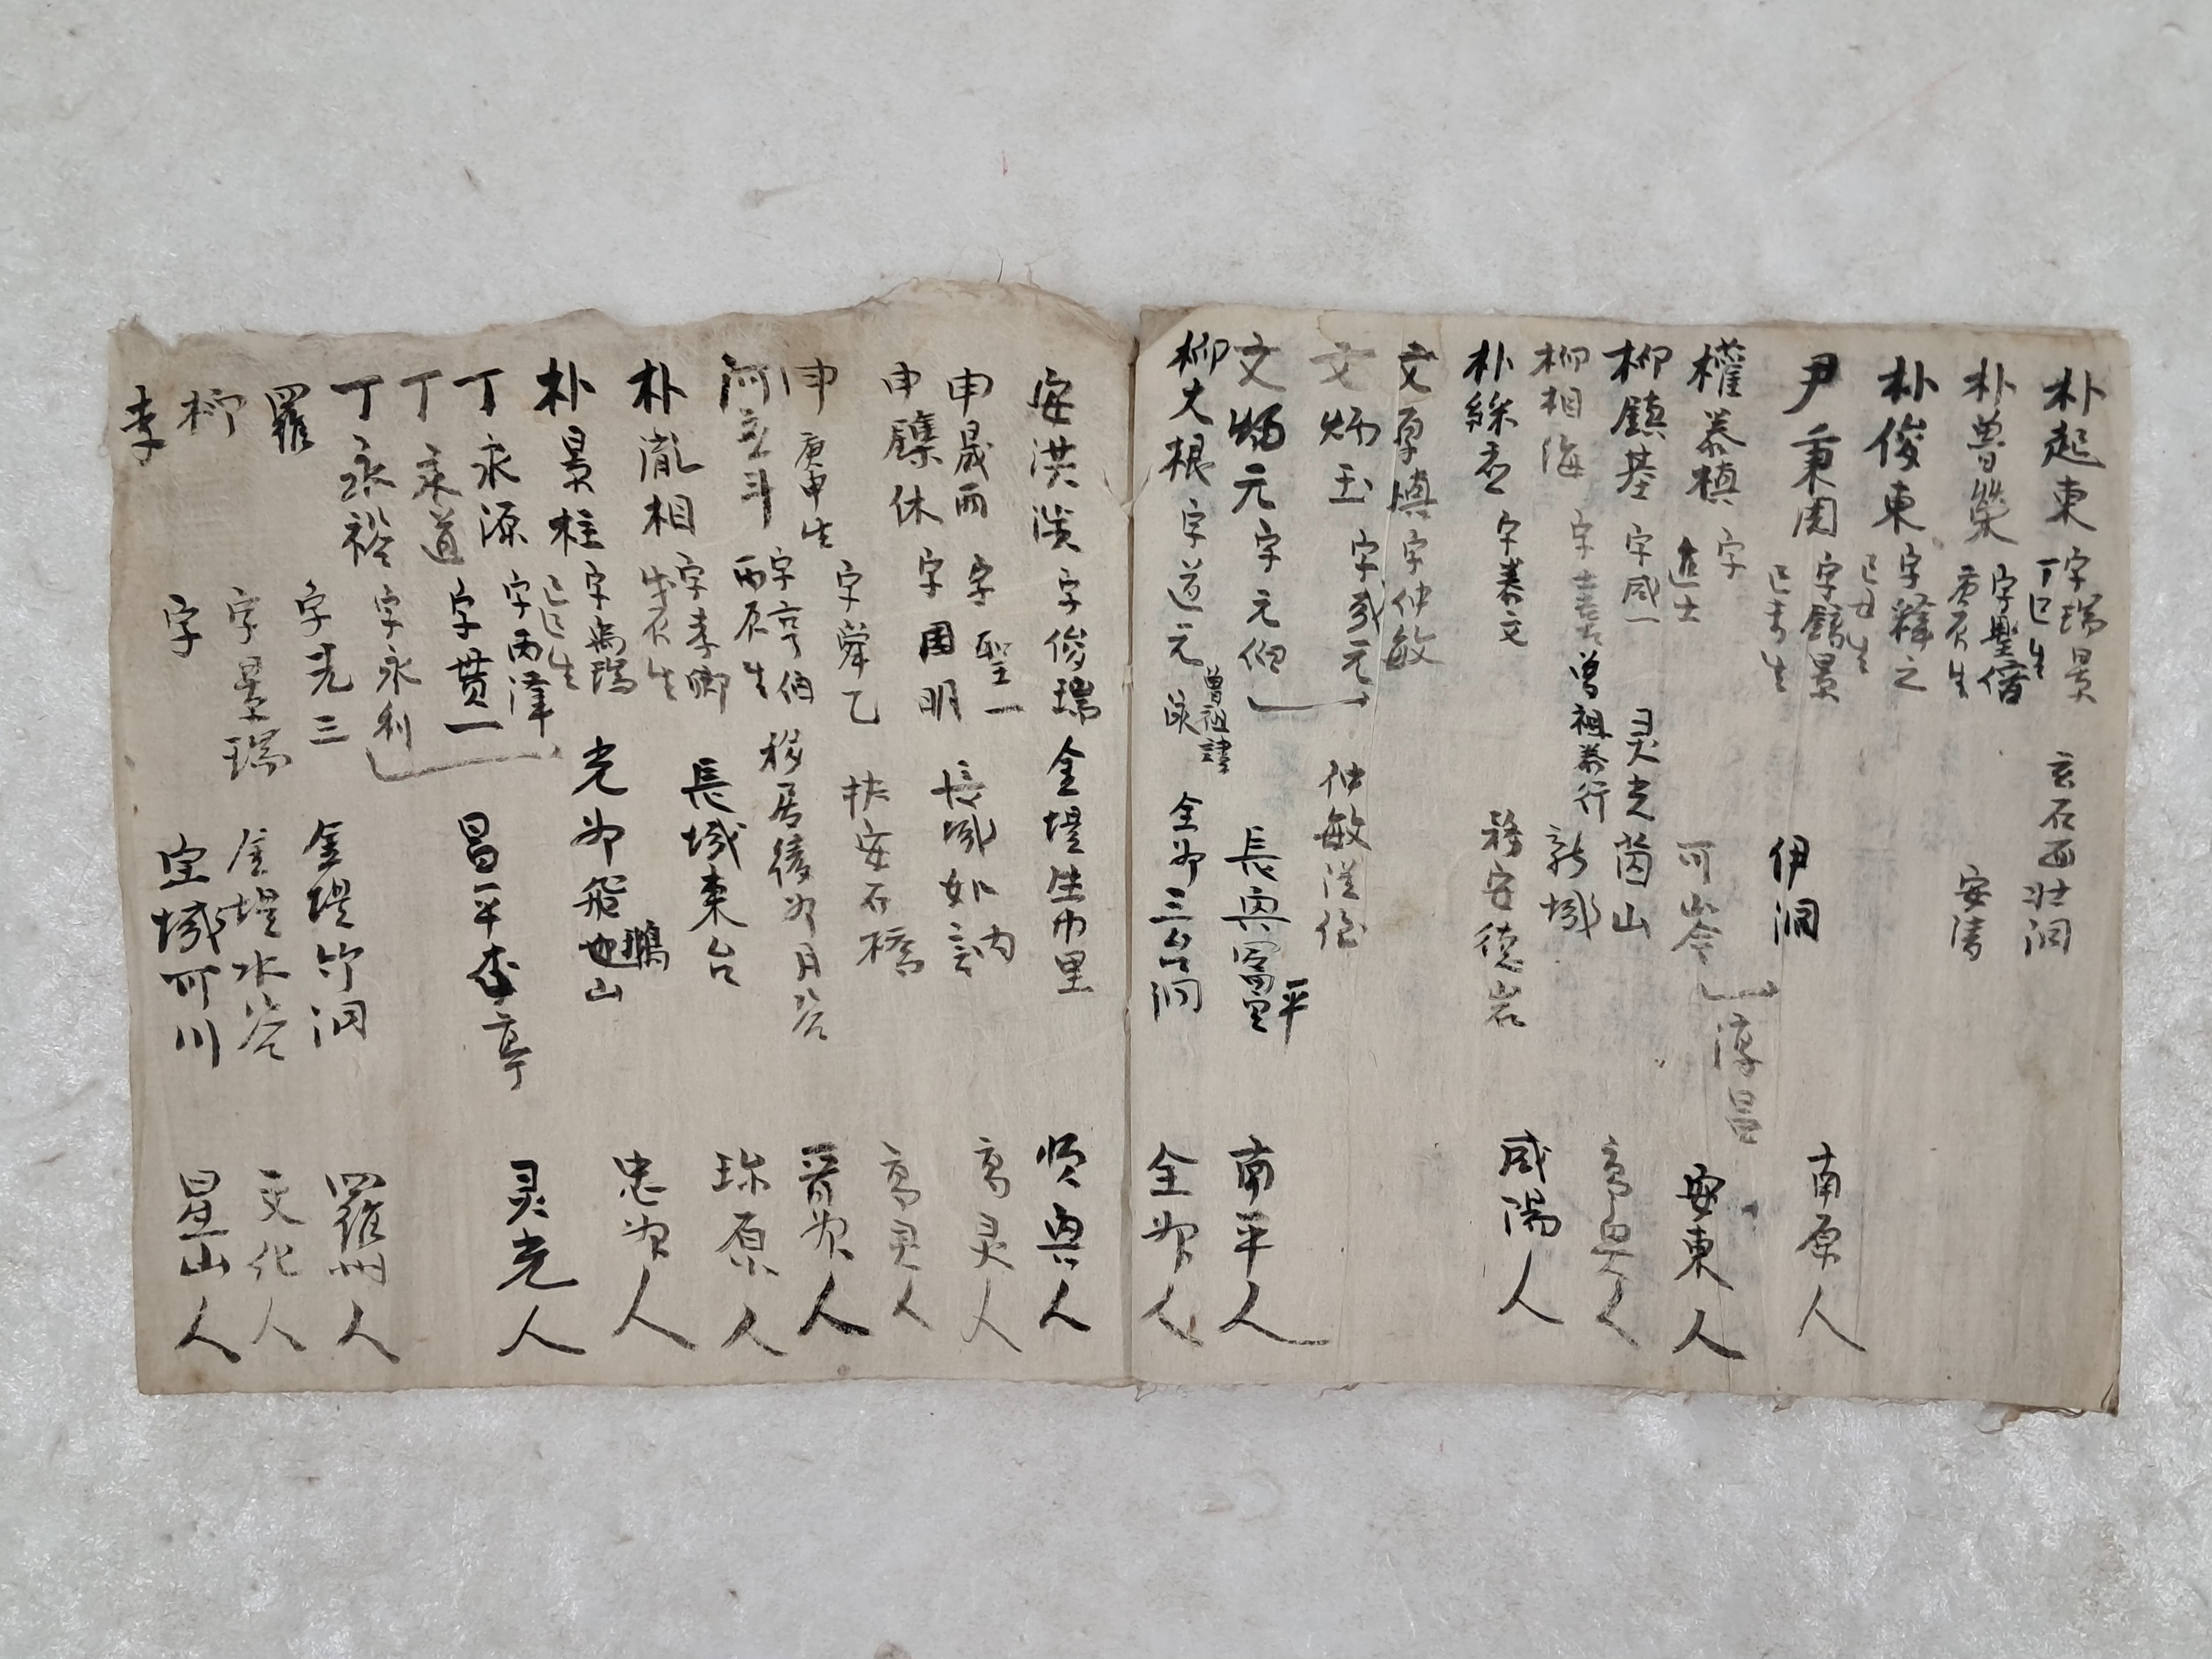 朴起東 字瑞景 丁巳生 玄石西壯洞
朴曾榮 字聖 庚辰生 安清
朴俊東 字釋之 己丑生
尹秉周 字鎬景 己未生 伊洞 南原人
權泰禎 字 進士 可岑 淳昌 安東人
柳鎮基 字咸一 灵光茵山
柳相海 字士吉 曾祖泰行 新城 高興人
朴 字養文 務安德岩 咸陽人
文厚 字仲敏
文炳玉 字或元 仲敏從侄
文炳元 字元伯 長興冨平里 南平人
柳大根 字道元 曾祖諱泳 全州三台洞 全州人
安洪 字俊瑞 金堤生巾里 順興人
申晟雨 字聖一 長城如訥 高灵人
申休 字周明
申 庚申生 字舜乙 扶安石橋 高灵人
河斗 字亨伯 丙辰生 移居綾州月谷 晉州人
朴胤相 字季卿 戊辰生 長城東台 珍原人
朴景柱 字禹瑞 己巳生 光州飛鴉山 忠州人
丁永源 字丙澤
丁永道 字貫一 昌平亭 灵光人
丁永裕 字永利
羅 字光三 金堤竹洞 羅州人
柳 字景瑞 金堤水谷 文化人
李 字 宝城可川 星山人